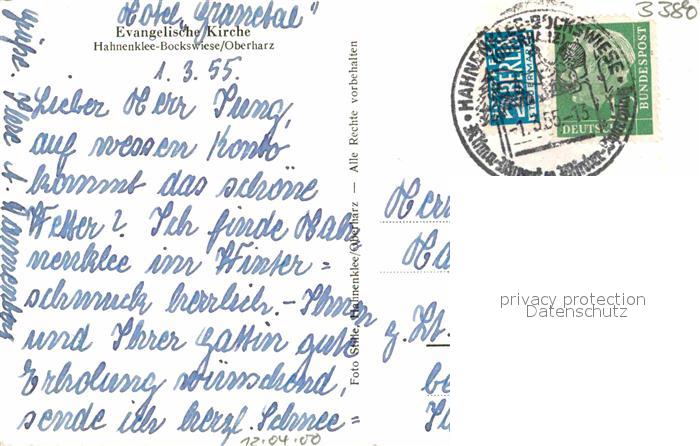 Hotel „Granetal“
Evangelische Kirche
Hahnenklee-Bockswiese/Oberharz
1.3.55.
Lieber Herr Jung,
auf wessen Konto
kommt das schöne
Wetter? Ich finde Hah
nenklee im Winter=
schmuck herrlich. – Ihnen
und Ihrer Gattin gute
Erholung wünschend,
sende ich herzl. Schnee=
grüße.
12.04.00
Foto Stille, Hahnenklee/Oberharz — Alle Rechte vorbehalten
3380
HAHNENKLEE-BOCKSWIESE
-1.3.55-13
NOTOPFER
BERLIN
STEUERMARKE
DEUTSCHE
BUNDESPOST
Herrn
z. Zt.
privacy protection
Datenschutz